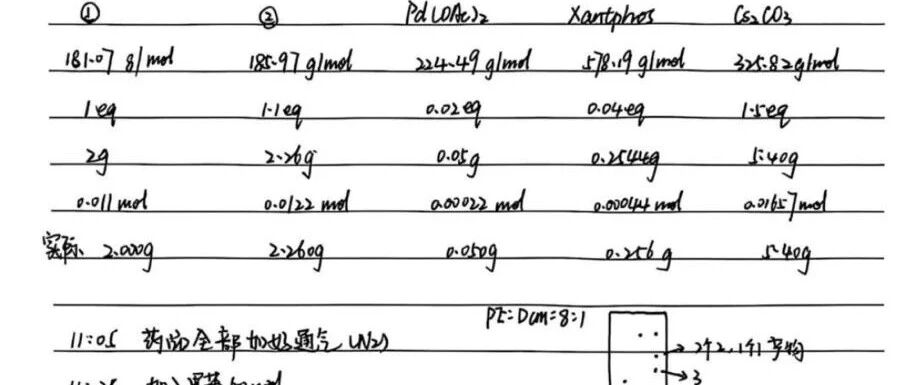 ① ② Pd(OAc)2 Xantphos Cs2CO3
181.07 g/mol 185.97 g/mol 224.49 g/mol 578.19 g/mol 325.82 g/mol
1 eq 1.1 eq 0.02 eq 0.04 eq 1.5 eq
2g 2.26g 0.05g 0.2544g 5.40g
0.011 mol 0.0122 mol 0.00022 mol 0.00044 mol 0.01657 mol
实际、2.000g 2.260g 0.050g 0.256 g 5.40g
PE:DCM=8:1
11:05 药品全部加好通气(N2)
→2个2,1个1产物
→3